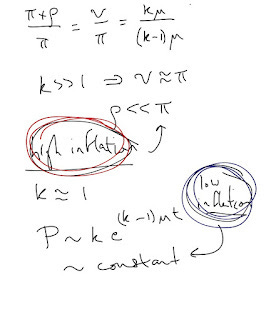 π+ρ/π = ν/π = kμ/(k-1)μ
k>>1 ⇒ ν≈π
ρ<<π
high inflation
k≈1
low inflation
P~k e^(k-1)μt
~ constant